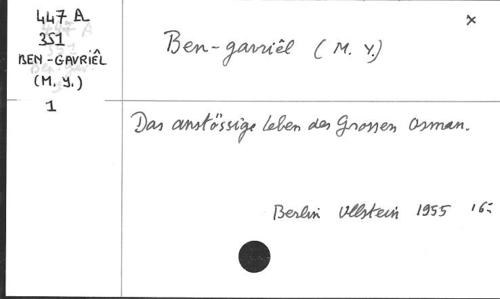 447 A
351
BEN-GAVRIÊL
(M. Y.)
1
x
Ben-gavriêl (M. Y.)
Das anstössige Leben des Grossen Osman.
Berlin Ullstein 1955 16-